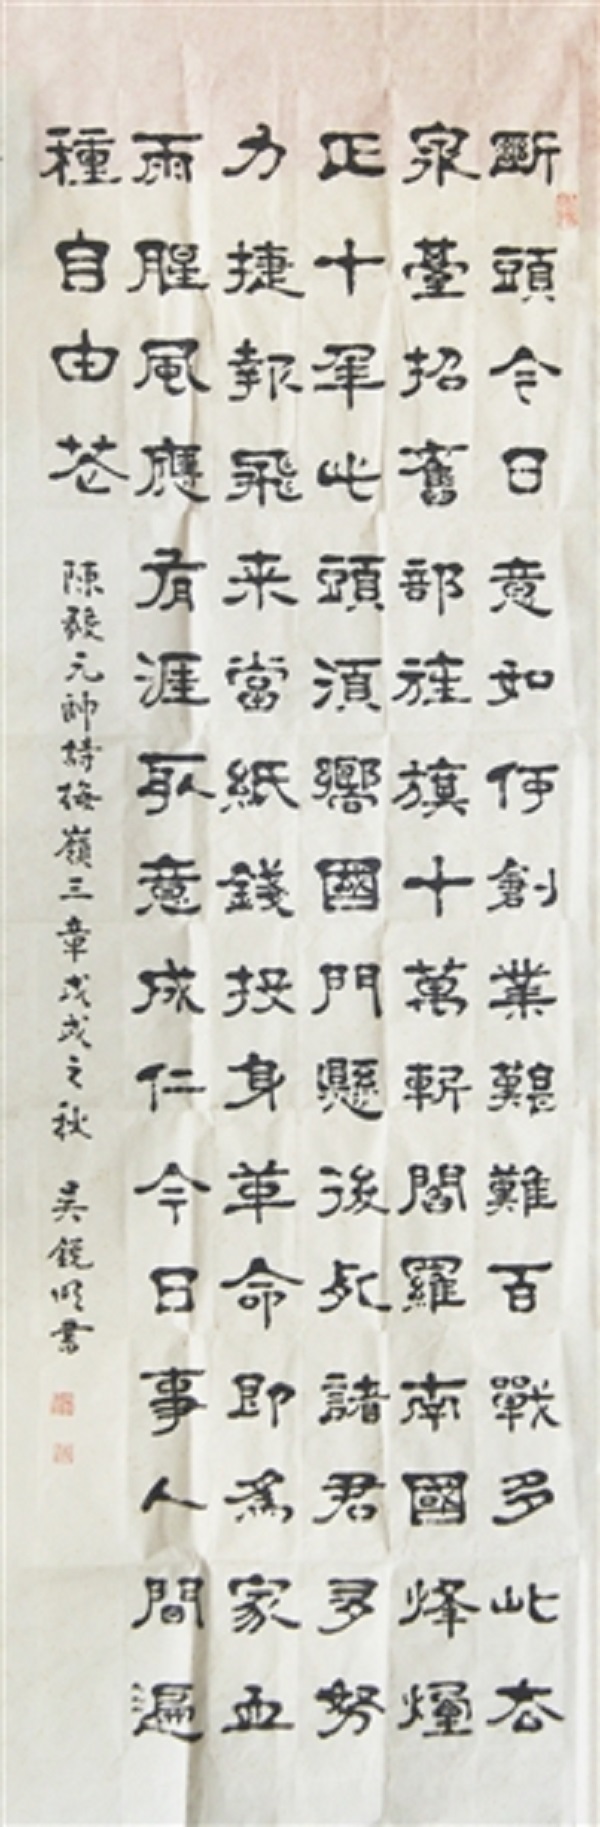 斷頭今日意如何創業艱難百戰多此去
泉臺招舊部旌旗十萬斬閻羅南國烽煙
正十年此頭須嚮國門懸後死諸君多努
力捷報飛来當紙錢投身革命即為家血
雨腥風應有涯取意成仁今日事人間遍
種自由花
陳毅元帥詩梅嶺三章戊戌之秋 吴鏡明書